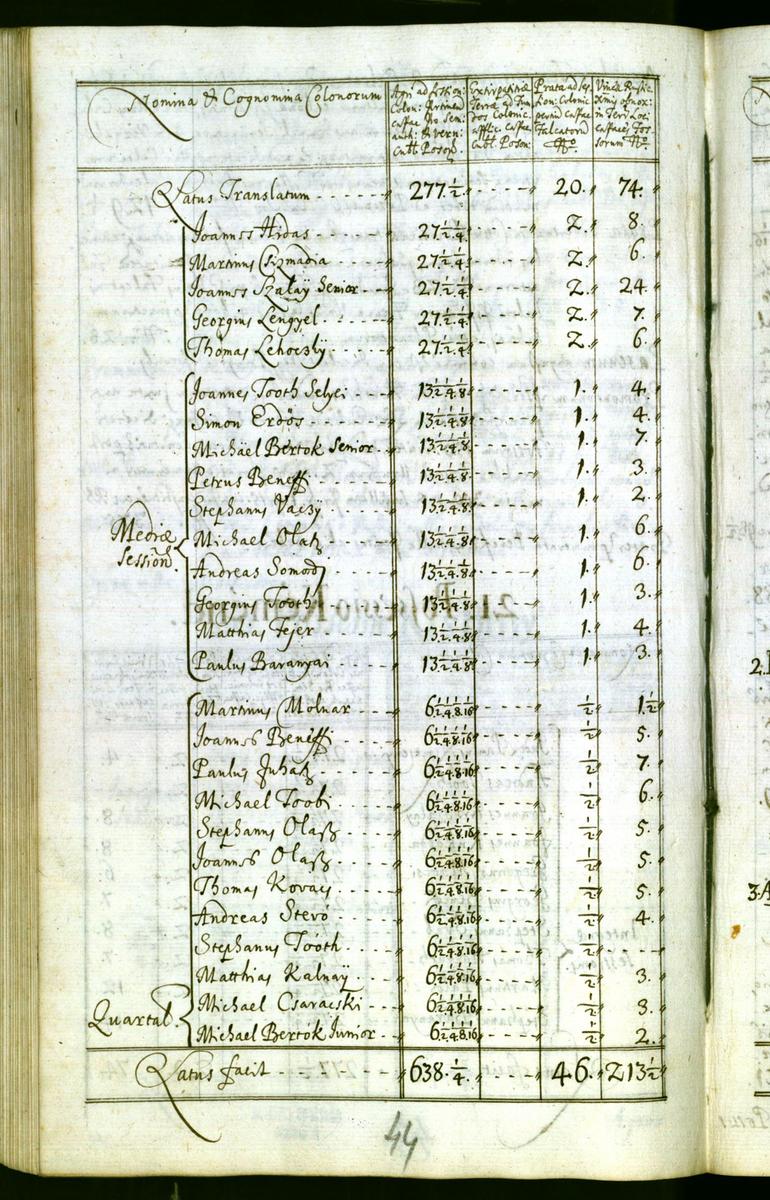 Nomina & Cognomina Colonorum
Agri ad session: Colon: Pertinen: capae No Sem: auth: & vern: Cubl: Poson.
Extirpatitiae Terrae ad Fundos Colonic. applic. capae Cubl. Poson:
Prata ad session: Colonic pertin capae Falcatorū No.
Vineae Rustic. in Terr: Loci capaes Fossorum No.
Latus Translatum 277.1/2 20. 74.
Joannes Hidas 27.1/2.1/4 2. 8.
Martinus Csizmadia 27.1/2.1/4 2. 6.
Joannes Szalaÿ Senior 27.1/2.1/4 2. 24.
Georgius Lengyel 27.1/2.1/4 2. 7.
Thomas Lehoczkÿ 27.1/2.1/4 2. 6.
Joannes Tooth Selyei 13.1/2.1/4.1/8 1. 4.
Simon Erdös 13.1/2.1/4.1/8 1. 4.
Michäel Bertok Senior 13.1/2.1/4.1/8 1. 7.
Petrus Beneffi 13.1/2.1/4.1/8 1. 3.
Stephanus Vacsÿ 13.1/2.1/4.1/8 1. 2.
Mediae Session: Michael Olasz 13.1/2.1/4.1/8 1. 6.
Andreas Somody 13.1/2.1/4.1/8 1. 6.
Georgius Tooth 13.1/2.1/4.1/8 1. 3.
Matthias Fejer 13.1/2.1/4.1/8 1. 4.
Paulus Baranyai 13.1/2.1/4.1/8 1. 3.
Martinus Molnar 6.1/2.1/4.1/8.1/16 1/2 1.1/2
Joannes Beneffi 6.1/2.1/4.1/8.1/16 1/2 5.
Paulus Juhasz 6.1/2.1/4.1/8.1/16 1/2 7.
Michael Toobi 6.1/2.1/4.1/8.1/16 1/2 6.
Stephanus Olasz 6.1/2.1/4.1/8.1/16 1/2 5.
Joannes Olasz 6.1/2.1/4.1/8.1/16 1/2 5.
Thomas Kovacs 6.1/2.1/4.1/8.1/16 1/2 5.
Andreas Stevo 6.1/2.1/4.1/8.1/16 1/2 4.
Stephanus Tóoth 6.1/2.1/4.1/8.1/16 1/2
Matthias Kalnaÿ 6.1/2.1/4.1/8.1/16 1/2 3.
Quartal. Michael Csaracski 6.1/2.1/4.1/8.1/16 1/2 3.
Michael Bertok Iunior 6.1/2.1/4.1/8.1/16 1/2 2.
Latus facit 638.1/4. 46. 213 1/2
44